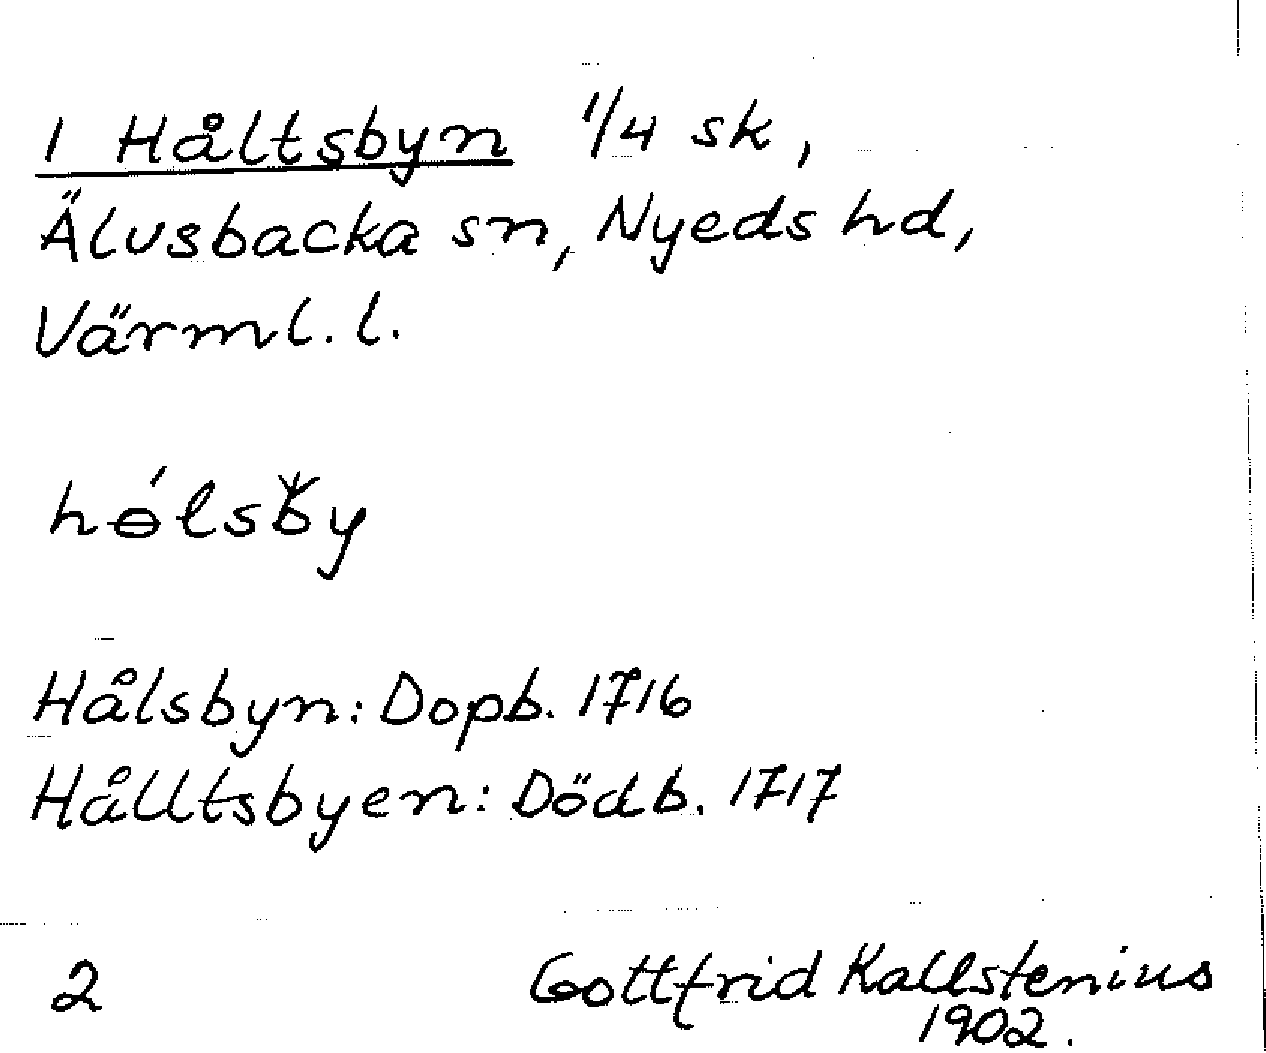 1 Håltsbyn 1/4 sk,
Älvsbacka sn, Nyeds hd,
Värml. l.
hɵ́lsby
Hålsbyn: Dopb. 1716
Hålltsbyen: Dödb. 1717
2
Gottfrid Kallstenius
1902.